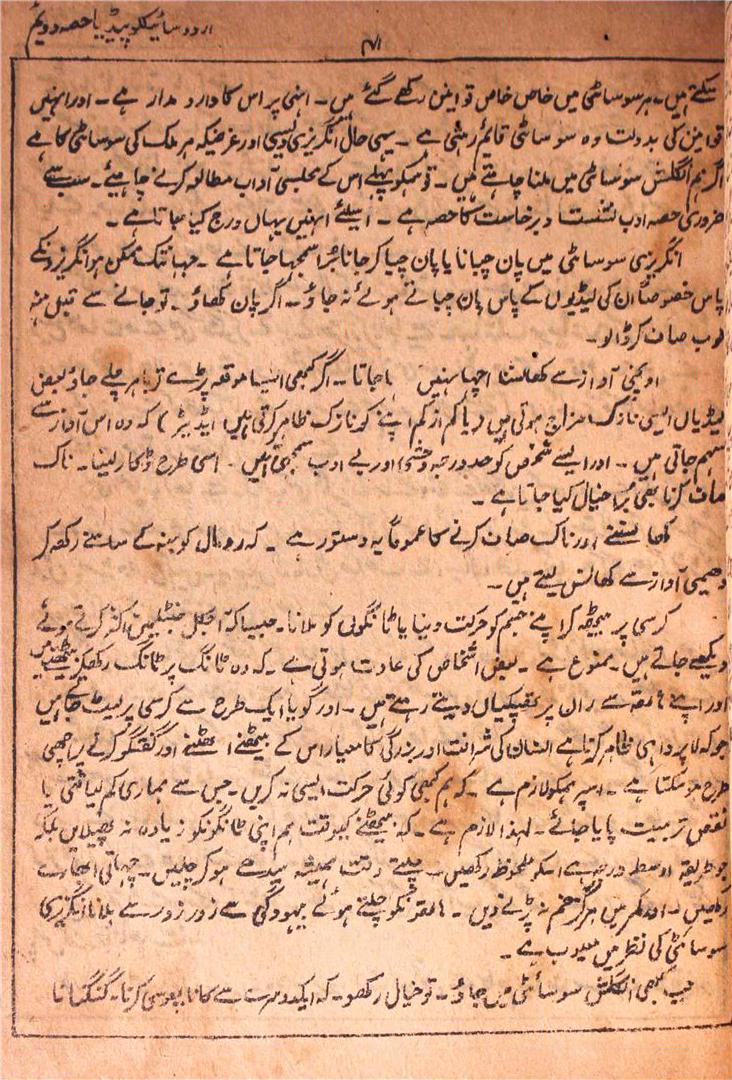 اردو سائیکلوپیڈیا حصہ دویم
۴۱
سکتے ہیں۔ ہر سوسائٹی میں خاص خاص قوانین رکھے گئے ہیں۔ انہی پر اس کا دارومدار ہے۔ اور انہیں
قوانین کی بدولت وہ سوسائٹی قایم رہتی ہے۔ یہی حال انگریزی دیسی اور غرضیکہ ہر ملک کی سوسائٹی کا ہے
اگر ہم انگلش سوسائٹی میں ملنا چاہتے ہیں۔ تو ہمکو پہلے اس کے مجلسی آداب مطالعہ کرنے چاہیئے۔ سب سے
ضروری حصہ ادب نشست و برخاست کا حصہ ہے۔ اسلئے انہیں یہاں درج کیا جاتا ہے۔
انگریزی سوسائٹی میں پان چبانا یا پان چبا کر جانا بُرا سمجھا جاتا ہے۔ جہانتک ممکن ہو انگریزونکے
پاس خصوصاً ان کی لیڈیوں کے پاس پان چباتے ہوئے نہ جاؤ۔ اگر پان کھاؤ۔ تو جانے سے قبل منہ
خوب صاف کر ڈالو۔
اونچی آواز سے کھانسنا اچھا نہیں جاتا۔ اگر کبھی ایسا موقعہ پڑے تو باہر چلے جاؤ بعض
لیڈیاں ایسی نازک مزاج ہوتی ہیں (یا کم از کم اپنے کو نازک ظاہر کرتی ہیں) ایڈیٹر) کہ وہ اس آواز سے
سہم جاتی ہیں۔ اور ایسے شخص کو حد درجہ وحشی اور بے ادب سمجھتی ہیں۔ اسی طرح ڈکار لینا۔ ناک
صاف کرنا بھی بُرا خیال کیا جاتا ہے۔
کھانسنے اور ناک صاف کرنے کا عموماً یہ دستور ہے۔ کہ رومال کو منہ کے سامنے رکھ کر
دھیمی آواز سے کھانس لیتے ہیں۔
کرسی پر بیٹھ کر اپنے جسم کو حرکت دینا یا ٹانگوں کو ہلانا۔ جیسا کہ آجکل جنٹلمین اکثر کرتے ہوئے
دیکھے جاتے ہیں۔ ممنوع ہے۔ بعض اشخاص کی عادت ہوتی ہے۔ کہ وہ ٹانگ پر ٹانگ رکھکر بیٹھتے ہیں
اور اپنے ہاتھ سے ران پر تھپکیاں دیتے رہتے ہیں۔ اور گویا ایک طرح سے کرسی پر لیٹ جاتے ہیں
جو کہ لاپرواہی ظاہر کرتا ہے انسان کی شرافت اور بزرگی کا معیار اس کے بیٹھنے اٹھنے اور گفتگو کرنے پر اچھی
طرح ہو سکتا ہے۔ اسپر ہمکو لازم ہے۔ کہ ہم کبھی کوئی حرکت ایسی نہ کریں۔ جس سے ہماری کم لیاقتی یا
نقص تربیت پایا جائے۔ لہذا لازم ہے۔ کہ بیٹھنے کیوقت ہم اپنی ٹانگونکو زیادہ نہ پھیلایں بلکہ
جو طریقہ اوسط درجہ ہے اسکو ملحوظ رکھیں۔ چلتے وقت ہمیشہ سیدھے ہو کر چلیں۔ چھاتی ابھارے
رکھیں۔ اور کمر میں ہرگز خم نہ پڑنے دیں۔ ہاتھونکو چلتے ہوئے بیہودگی سے زور زور سے ہلانا انگریزی
سوسائٹی کی نظر میں معیوب ہے۔
جب کبھی انگلش سوسائٹی میں جاؤ۔ تو خیال رکھو۔ کہ ایکدوسرے سے کانا پھوسی کرنا۔ گنگنانا